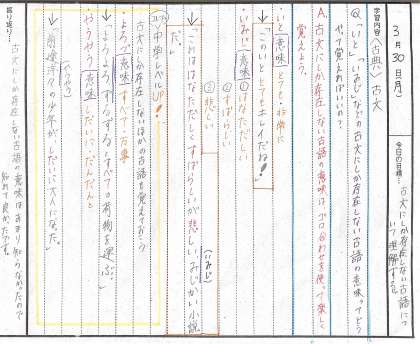 3月30日(月)
今日の目標… 古文にしか存在しない古語につ
いて理解する。
学習内容〈古典〉 古文
Q.「いと」「いみじ」などの古文にしか存在しない古語の意味ってどう
やって覚えればいいの？
A.古文にしか存在しない古語の意味は、ゴロ合わせを使って楽しく
覚えよう。
・いと 意味 とても・非常に
↓「このいととてもキレイだね！」
・いみじ 意味 ①はなはだしい
②すばらしい
③悲しい
(いみじ)
↓「これははなはだしくすばらしいが悲しい、いみじかい小説
だ。」
中学レベルUP!
古文にしか存在しないほかの古語も覚えておこう
・よろづ 意味 すべて・万事
↓「よろよろするする、すべての荷物を運ぶ。」
・やうやう 意味 しだいに・だんだんと
↓「前途洋々の少年が、しだいに大人になった。」
振り返り…
古文にしか存在しない古語の意味はあまり知らなかったので
知れて良かったです。